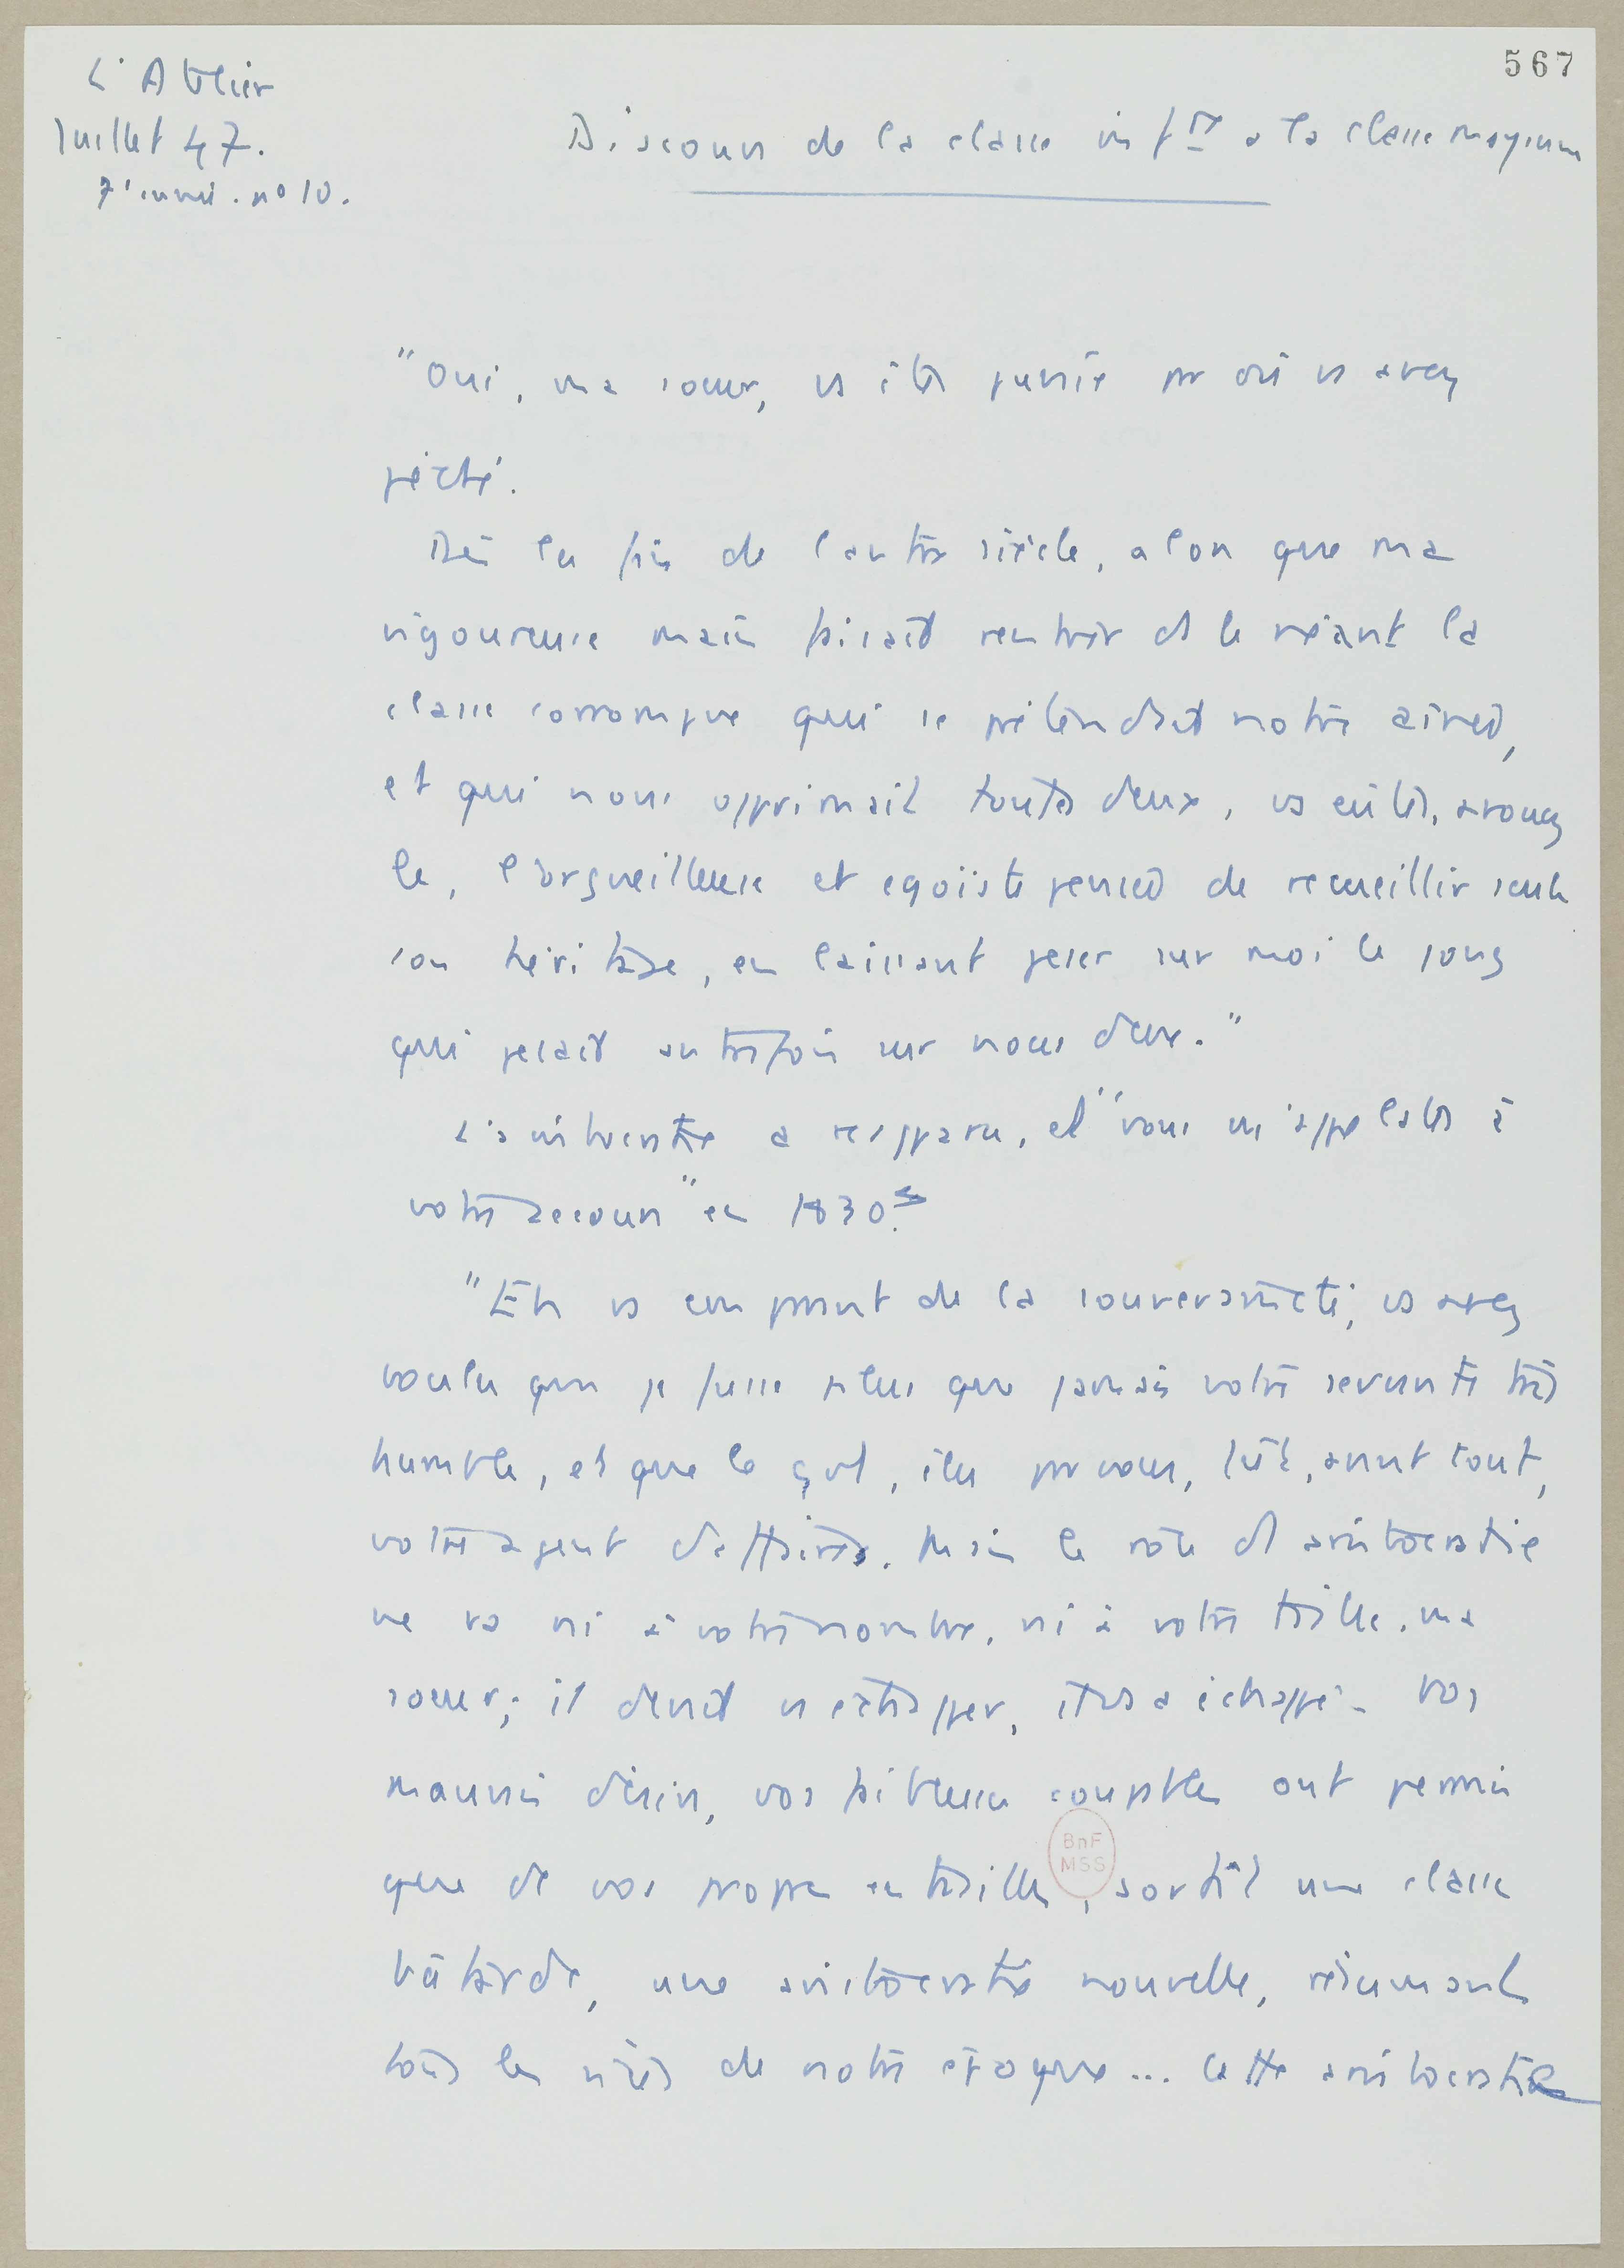 567
L'Atelier
Juillet 47.
7e année. no 10.
Discours de la classe infre à la classe moyenne
"Oui, ma soeur, vs êtes punie par où vs avez
péché.
Dès la fin de l'autre siècle, alors que ma
vigoureuse main faisait rentrer ds le néant la
classe corrompue qui se prétendait notre aînée,
et qui nous opprimait toutes deux, vs eûtes, avouez
le, l'orgueilleuse et egoïste pensée de recueillir seule
son héritage, en laissant peser sur moi le joug
qui pesait autrefois sur nous deux."
L'aristocratie a reapparu, et "vous m'appelates à
votre secours" en 1830.
"Et vs emparant de la souveraineté, vs avez
voulu que je fusse plus que jamais votre servante très
humble, et que le gvt, élu par vous, fût, avant tout,
votre agent d'affaires. Mais le rôle d'aristocratie
ne va ni à votre nombre, ni à votre taille, ma
soeur; il devait vs échapper, il vs a échappé. Vos
mauvais désirs, vos faiblesses coupables ont permis
que de vos propres entrailles, sortît une classe
bâtarde, une aristocratie nouvelle, résumant
tous les vices de notre époque... Cette aristocratie
BnF
MSS